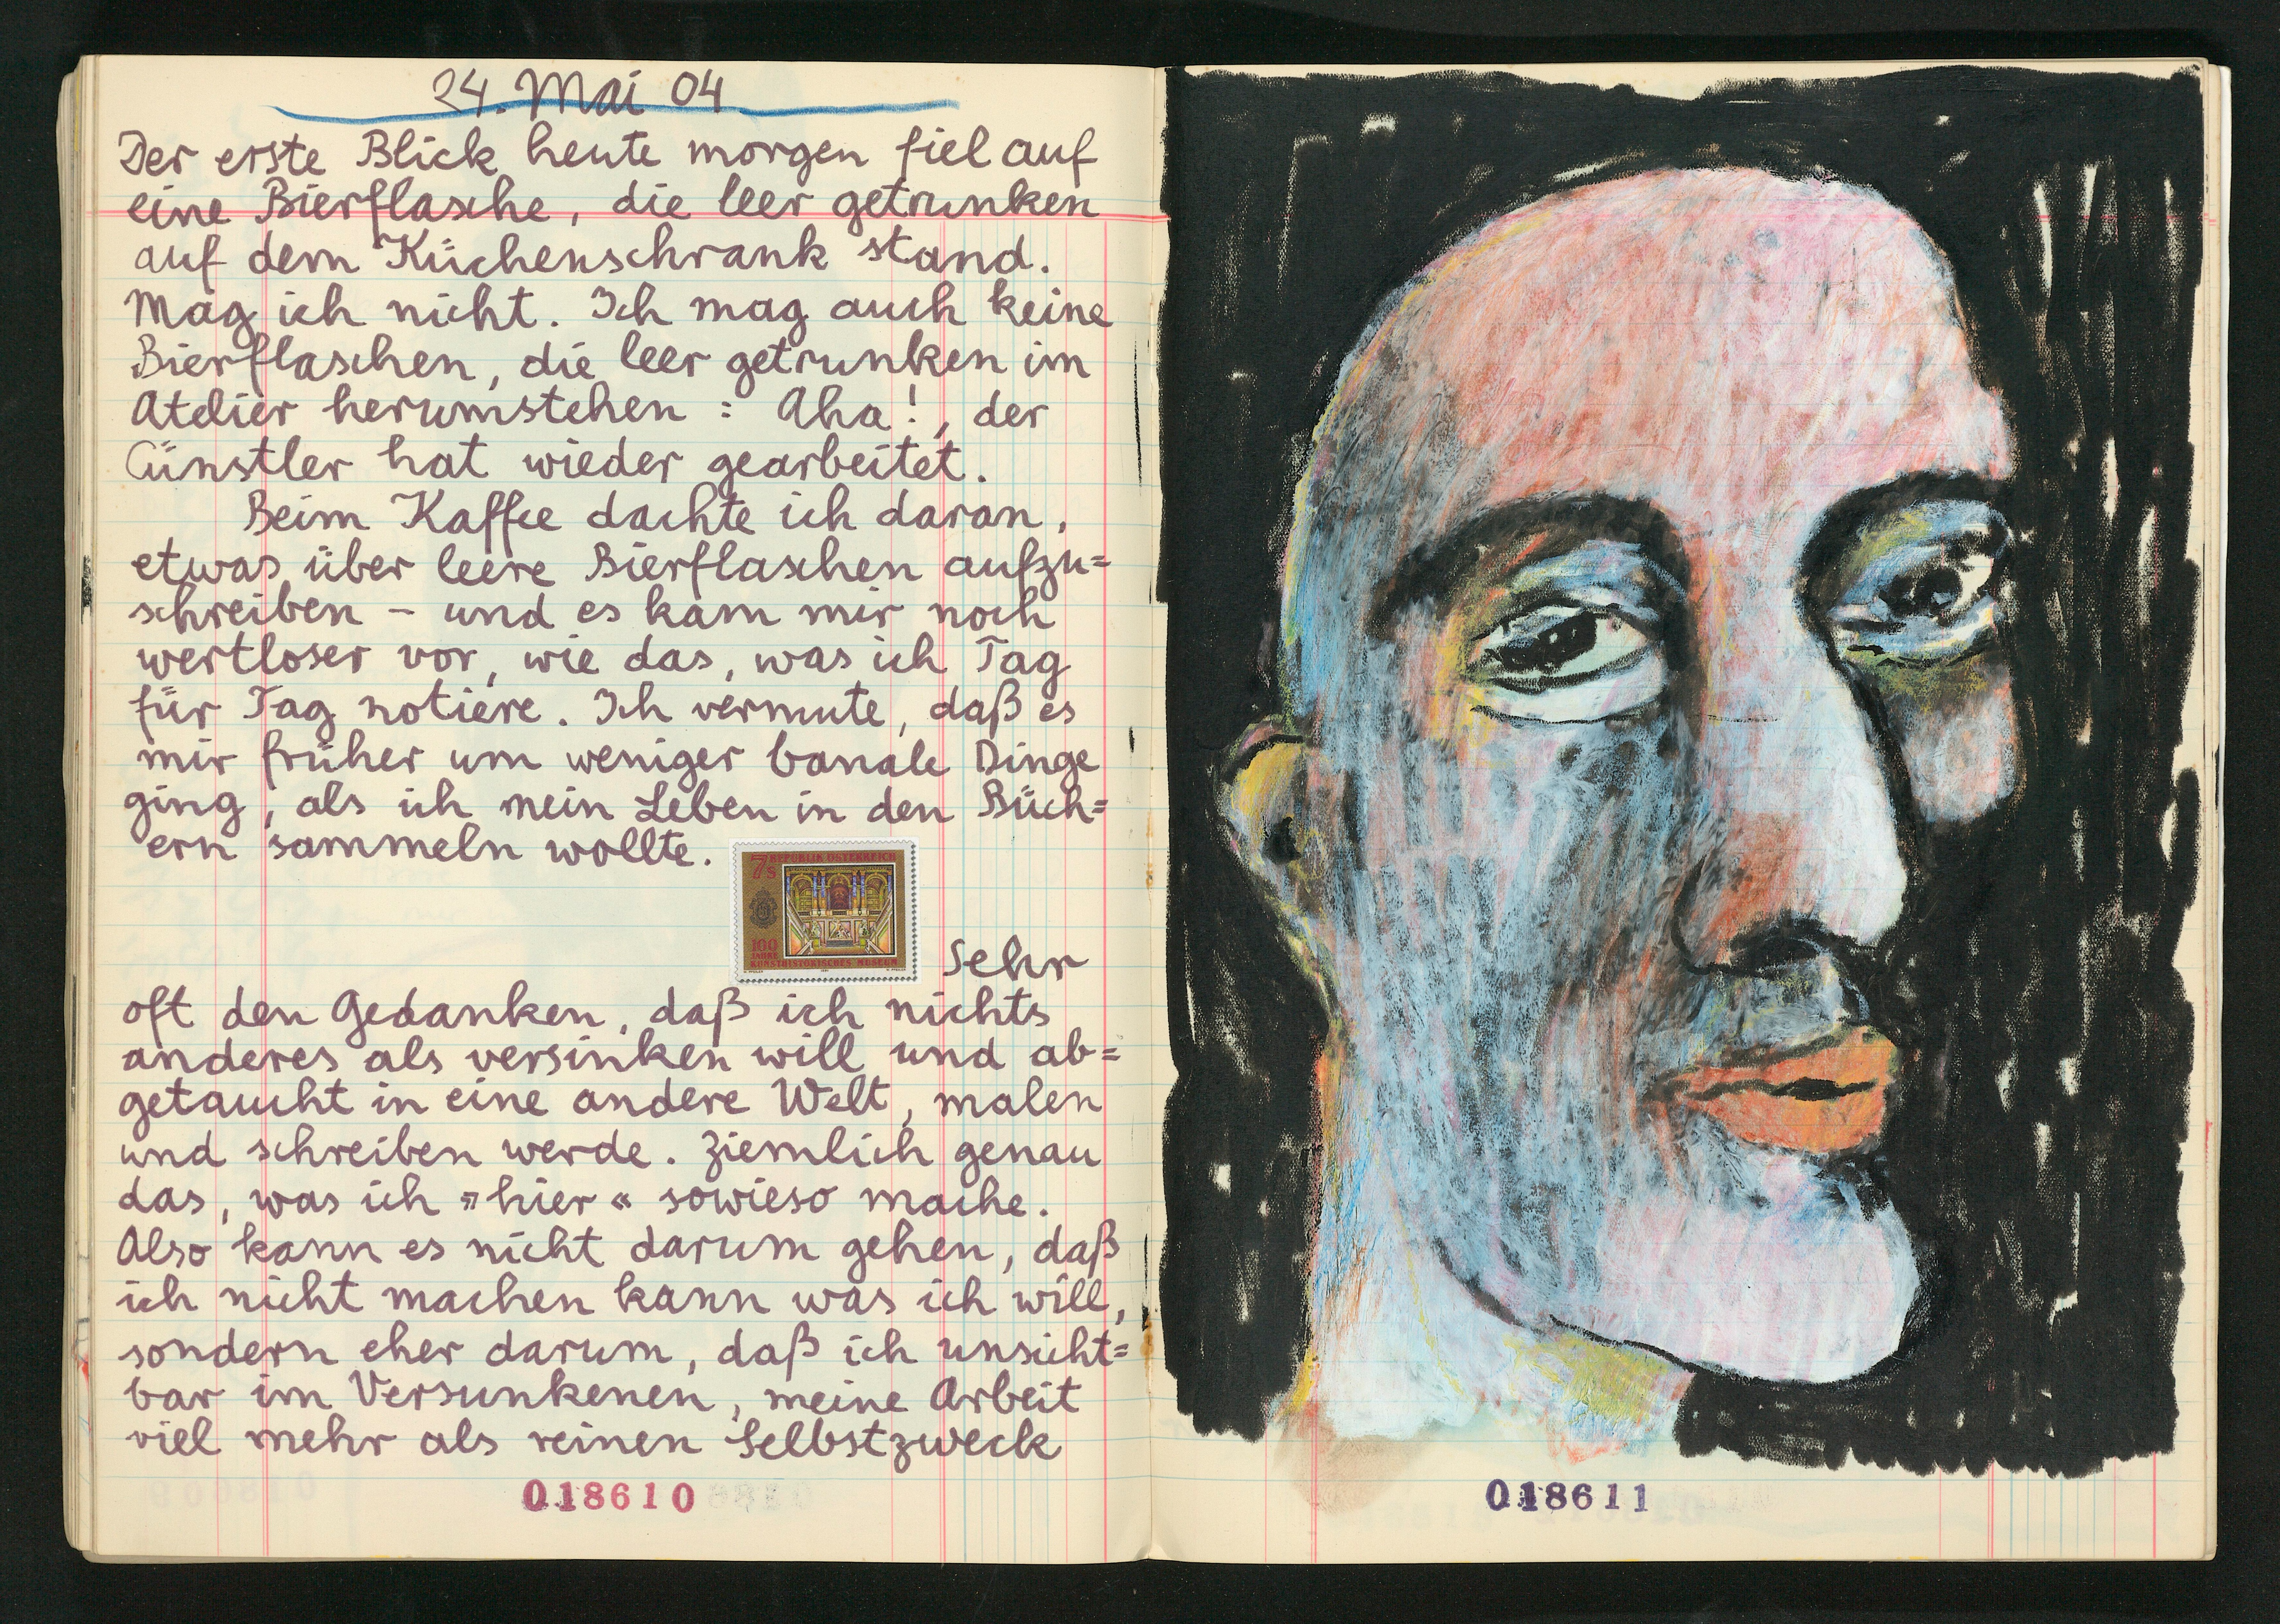 24. Mai 04
Der erste Blick heute morgen fiel auf
eine Bierflasche, die leer getrunken
auf dem Küchenschrank stand.
Mag ich nicht. Ich mag auch keine
Bierflaschen, die leer getrunken im
Atelier herumstehen : Aha!, der
Cünstler hat wieder gearbeitet.
Beim Kaffee dachte ich daran,
etwas über leere Bierflaschen aufzu=
schreiben – und es kam mir noch
wertloser vor, wie das, was ich Tag
für Tag notiere. Ich vermute, daß es
mir früher um weniger banale Dinge
ging, als ich mein Leben in den Büch=
ern sammeln wollte.
7s REPUBLIK ÖSTERREICH
100
JAHRE
KUNSTHISTORISCHES MUSEUM
Sehr
oft den Gedanken, daß ich nichts
anderes als versinken will und ab=
getaucht in eine andere Welt, malen
und schreiben werde. Ziemlich genau
das, was ich »hier« sowieso mache.
Also kann es nicht darum gehen, daß
ich nicht machen kann was ich will,
sondern eher darum, daß ich unsicht=
bar im Versunkenen, meine Arbeit
viel mehr als reinen Selbstzweck
018610
018611